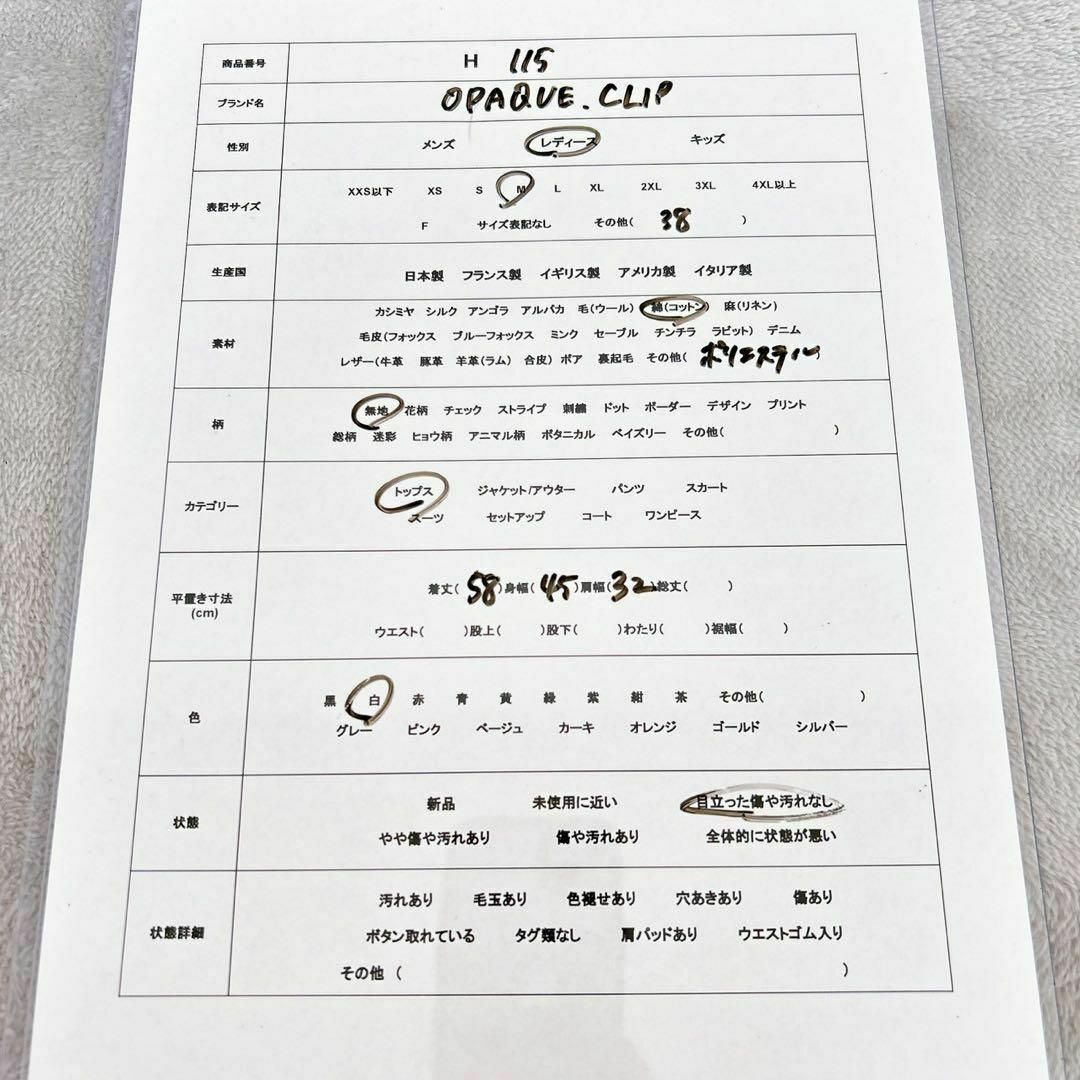 商品番号 H 115
ブランド名 OPAQUE.CLIP
性別 メンズ レディース キッズ
表記サイズ XXS以下 XS S M L XL 2XL 3XL 4XL以上
F サイズ表記なし その他( 38 )
生産国 日本製 フランス製 イギリス製 アメリカ製 イタリア製
素材 カシミヤ シルク アンゴラ アルパカ 毛(ウール) 綿(コットン) 麻(リネン)
毛皮(フォックス ブルーフォックス ミンク セーブル チンチラ ラビット) デニム
レザー(牛革 豚革 羊革(ラム) 合皮) ボア 裏起毛 その他( ポリエステル
柄 無地 花柄 チェック ストライプ 刺繍 ドット ボーダー デザイン プリント
総柄 迷彩 ヒョウ柄 アニマル柄 ボタニカル ペイズリー その他( )
カテゴリー トップス ジャケット/アウター パンツ スカート
スーツ セットアップ コート ワンピース
平置き寸法 (cm) 着丈( 58 )身幅( 45 )肩幅( 32 )総丈( )
ウエスト( )股上( )股下( )わたり( )裾幅( )
色 黒 白 赤 青 黄 緑 紫 紺 茶 その他( )
グレー ピンク ベージュ カーキ オレンジ ゴールド シルバー
状態 新品 未使用に近い 目立った傷や汚れなし
やや傷や汚れあり 傷や汚れあり 全体的に状態が悪い
状態詳細 汚れあり 毛玉あり 色褪せあり 穴あきあり 傷あり
ボタン取れている タグ類なし 肩パッドあり ウエストゴム入り
その他 ( )